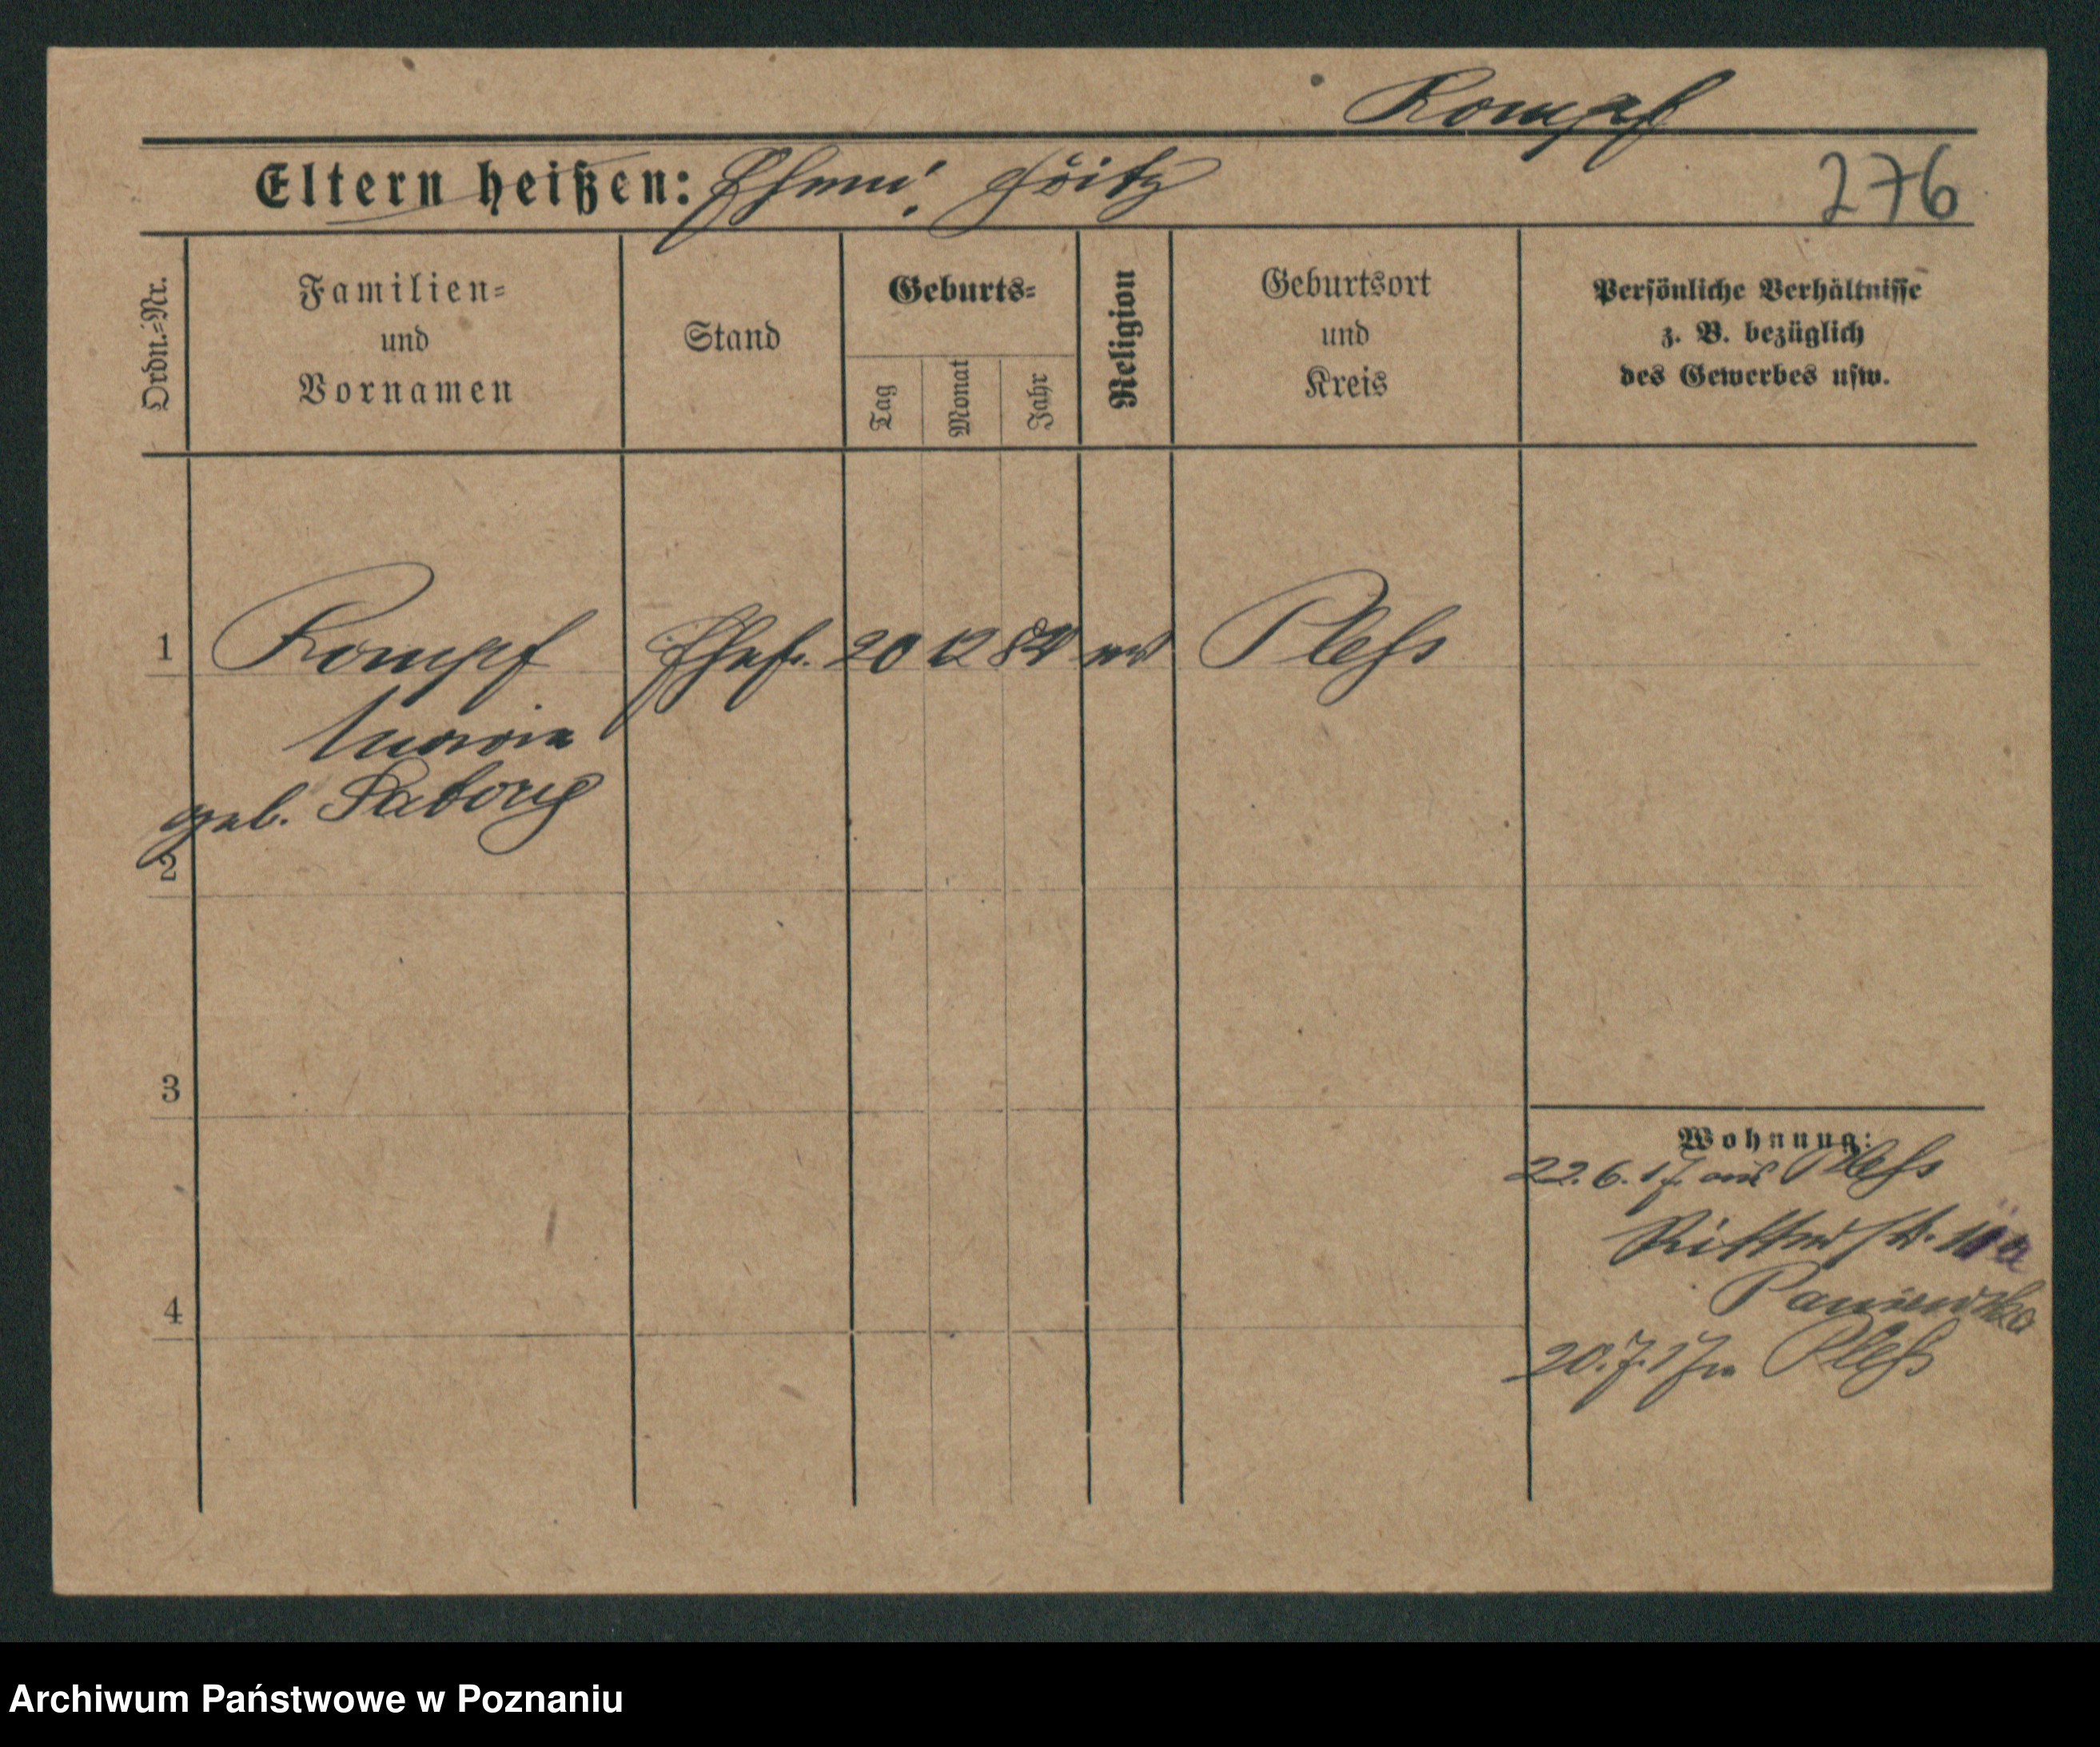 Kompf
Eltern heißen: Ehem: Fritz
276
Ordn.-Nr.
Familien-
und
Vornamen
Stand
Geburts-
Tag
Monat
Jahr
Religion
Geburtsort
und
Kreis
Persönliche Verhältnisse
z. B. bezüglich
des Gewerbes usw.
1 Kompf Ehefr. 20 12 84 ev Pleß
Maria
geb.
2
3
4
Wohnung:
22. 6. 17. aus Pleß
Ritterstr.
20. 7. 17 n Pleß
Archiwum Państwowe w Poznaniu